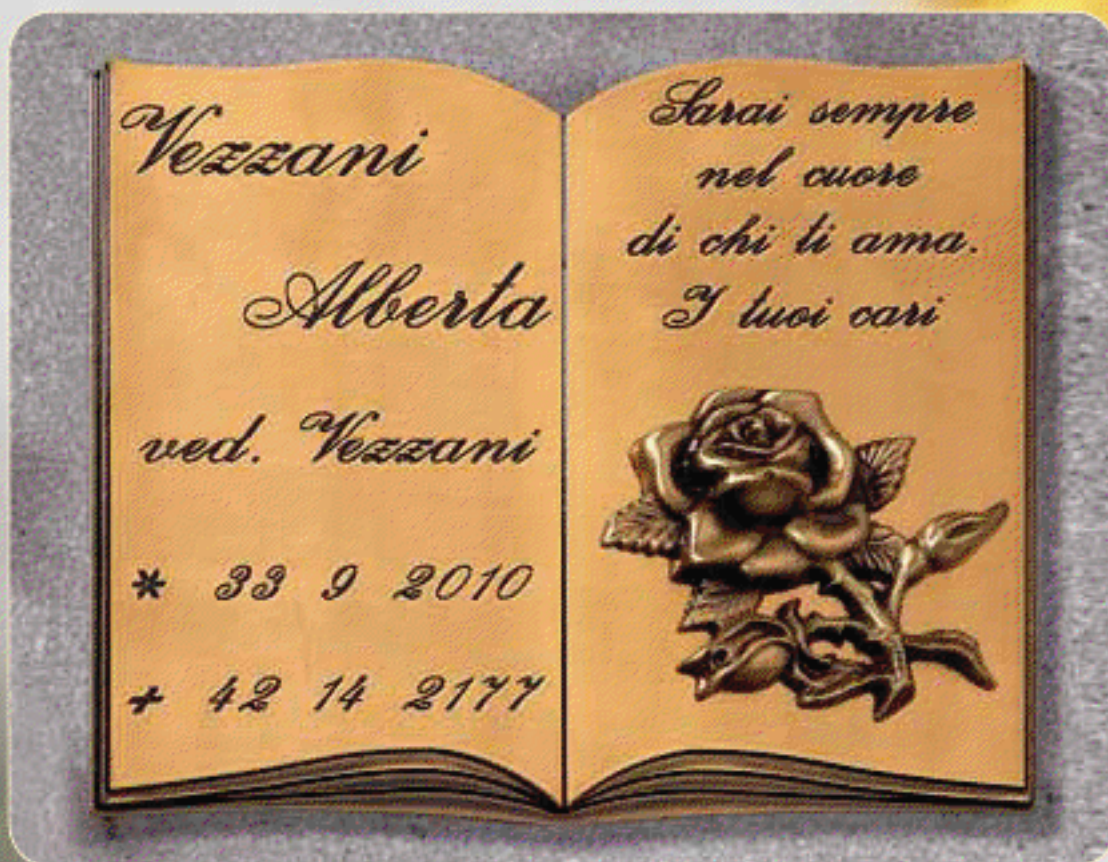 Vezzani
Alberta
ved. Vezzani
* 33 9 2010
+ 42 14 2177
Sarai sempre
nel cuore
di chi ti ama.
I tuoi cari